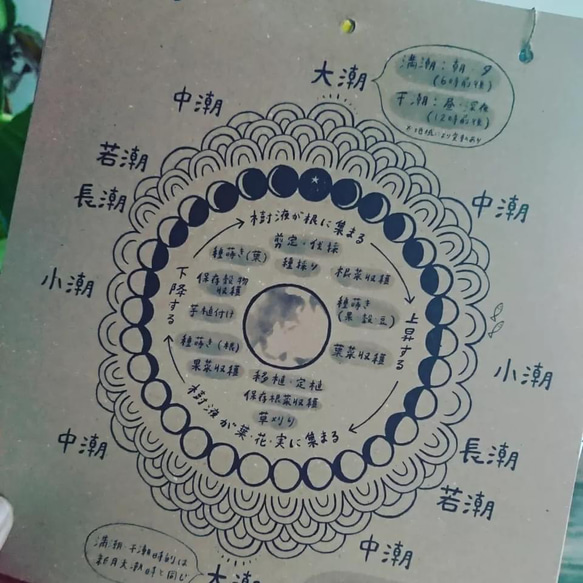 大潮
満潮：朝・夕
(6時前後)
干潮：昼・深夜
(12時前後)
中潮
若潮
長潮
小潮
中潮
中潮
小潮
長潮
若潮
中潮
大潮
樹液が根に集まる
上昇する
樹液が葉・花・実に集まる
下降する
剪定・伐採
種採り
根菜収穫
種蒔き
(果・穀・豆)
葉菜収穫
移植・定植
保存根菜収穫
草刈り
種蒔き(根)
果菜収穫
芋植付け
保存穀物
収穫
種蒔き(葉)
満潮・干潮時刻は
新月大潮時と同じ